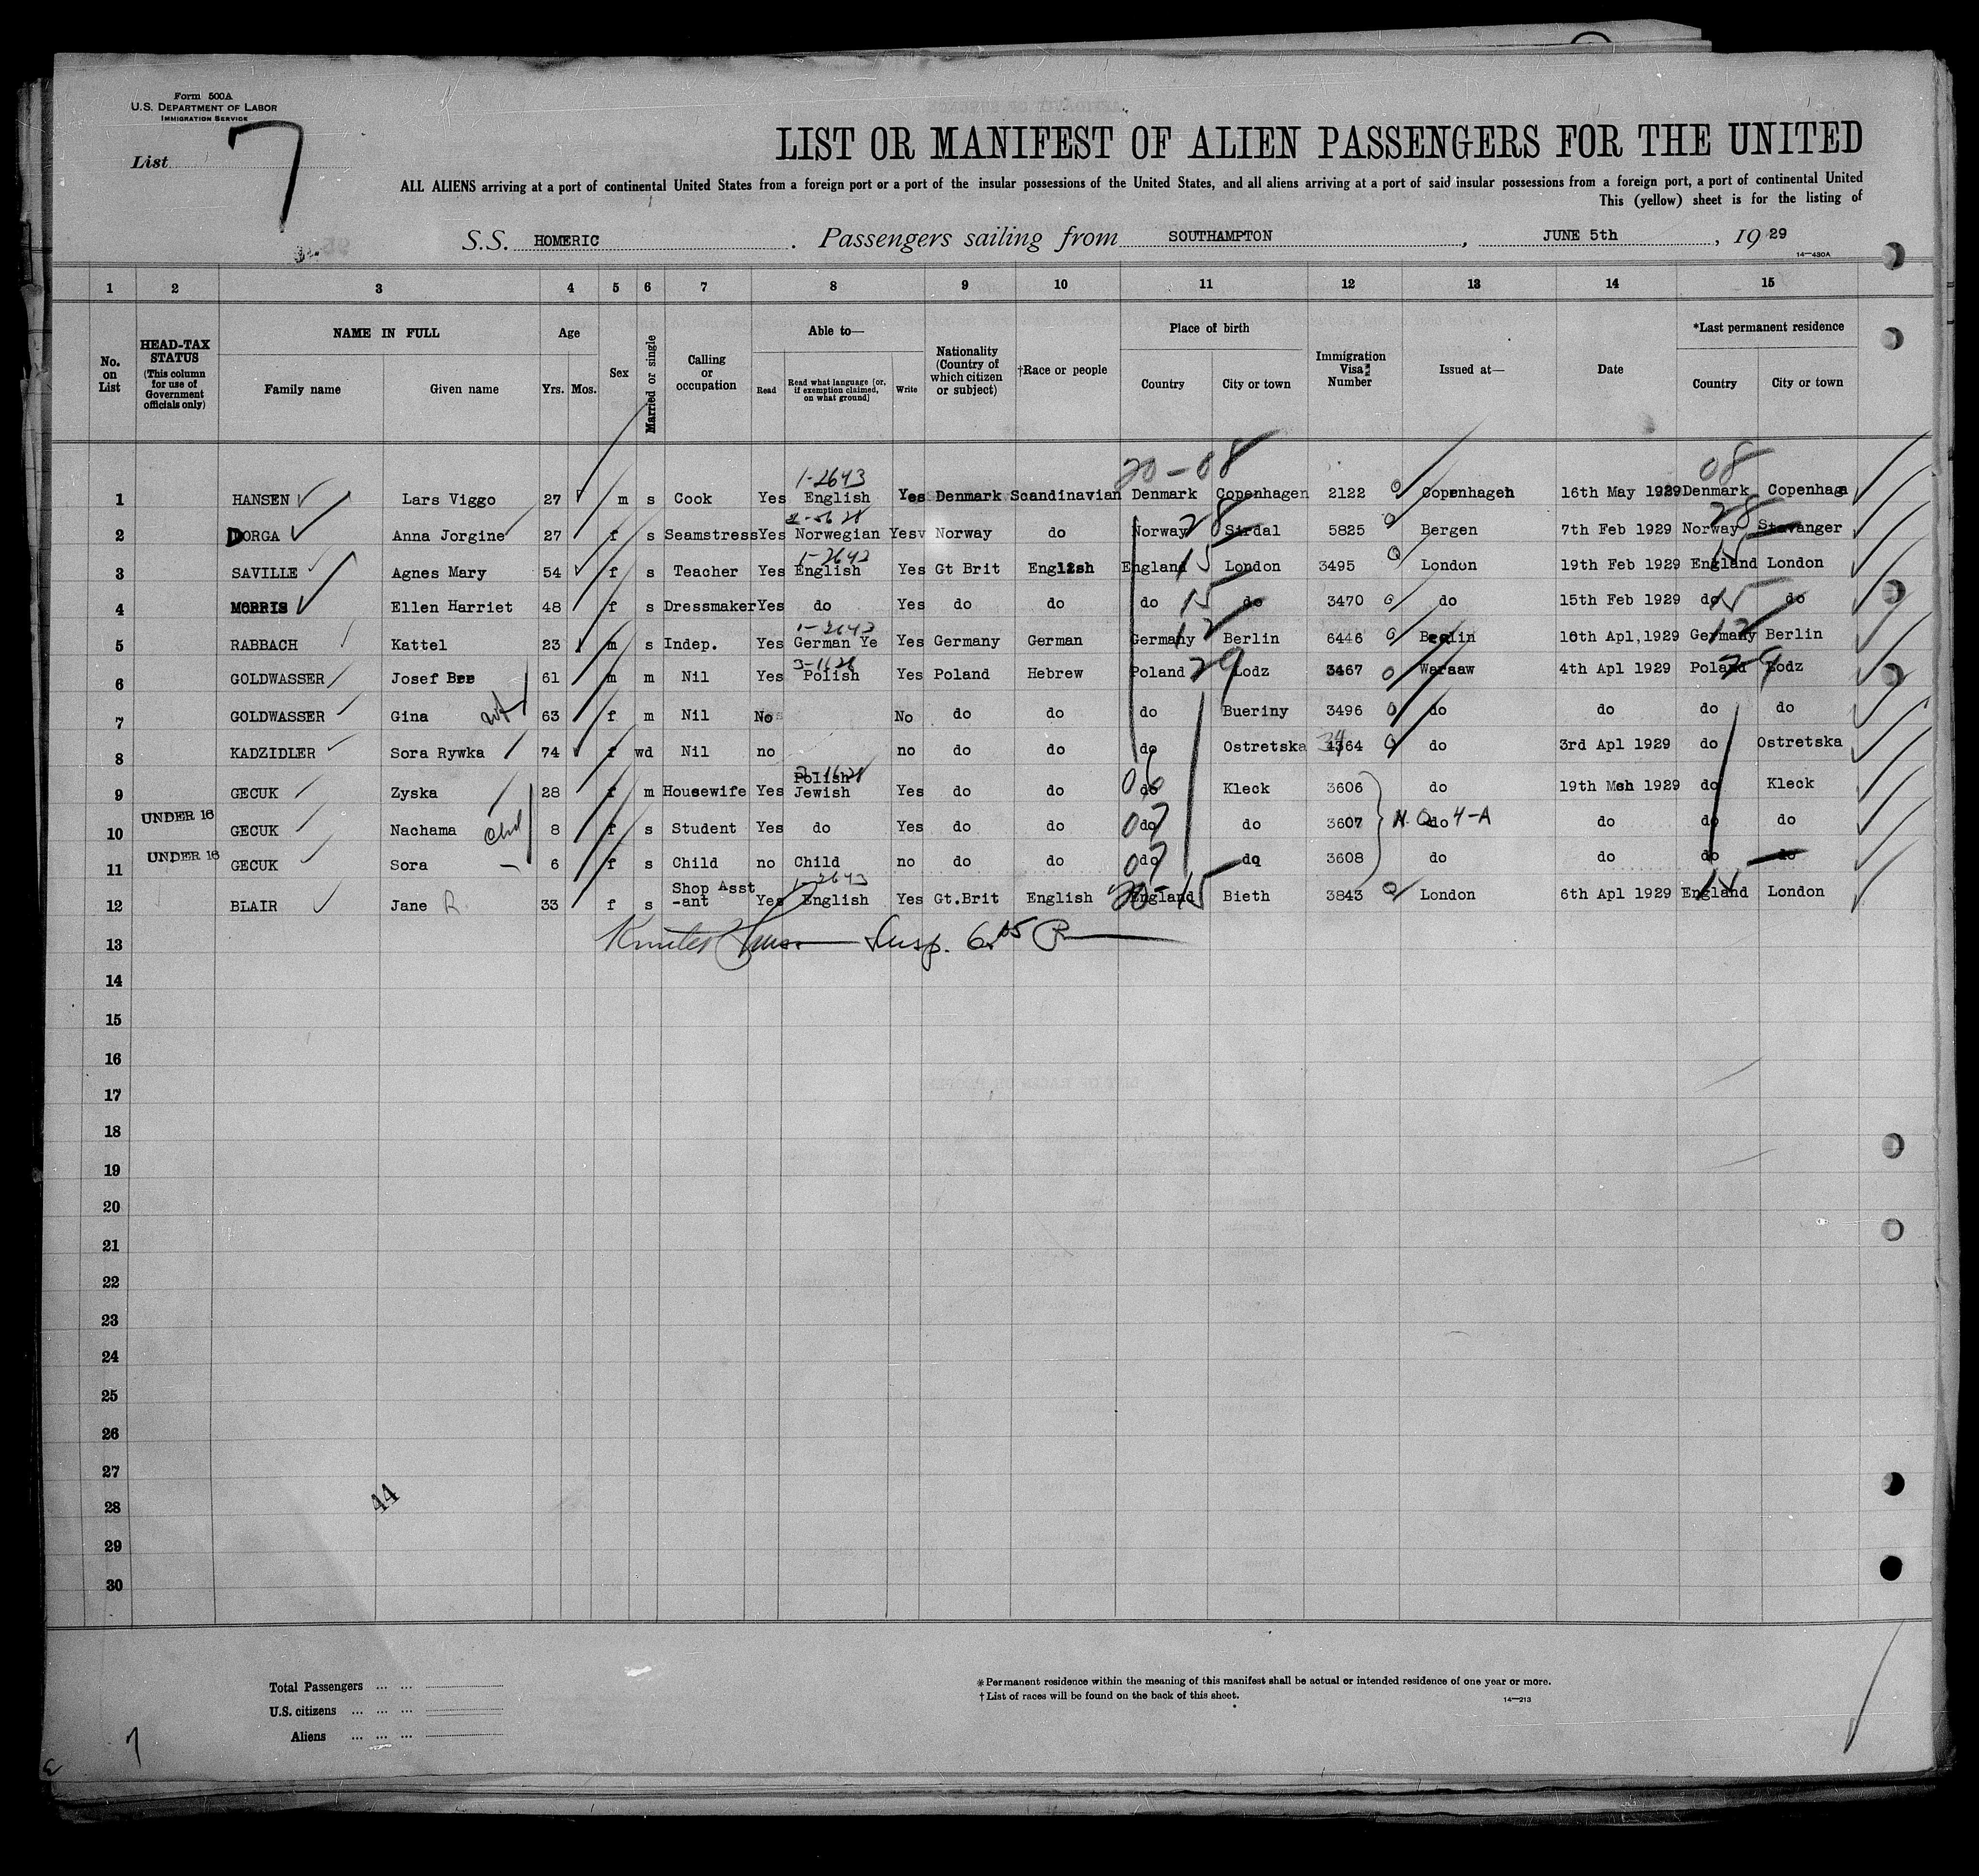 Form 500A
U.S. DEPARTMENT OF LABOR
IMMIGRATION SERVICE
List 7
LIST OR MANIFEST OF ALIEN PASSENGERS FOR THE UNITED
ALL ALIENS arriving at a port of continental United States from a foreign port or a port of the insular possessions of the United States, and all aliens arriving at a port of said insular possessions from a foreign port, a port of continental United
This (yellow) sheet is for the listing of
S.S. HOMERIC. Passengers sailing from SOUTHAMPTON, JUNE 5th, 19 29
14—430A
1 2 3 4 5 6 7 8 9 10 11 12 13 14 15
No. on List
HEAD-TAX STATUS (This column for use of Government officials only)
NAME IN FULL
Family name Given name
Age
Yrs. Mos.
Sex
Married or single
Calling or occupation
Able to—
Read Read what language [or, if exemption claimed, on what ground] Write
Nationality (Country of which citizen or subject)
†Race or people
Place of birth
Country City or town
Immigration Visa Number
Issued at—
Date
*Last permanent residence
Country City or town
1-2643 20-08 08
1 HANSEN Lars Viggo 27 m s Cook Yes English Yes Denmark Scandinavian Denmark Copenhagen 2122 Copenhagen 16th May 1929 Denmark Copenhaga
28 28
2 DORGA Anna Jorgine 27 f s Seamstress Yes Norwegian Yesv Norway do Norway Sirdal 5825 Bergen 7th Feb 1929 Norway Stavanger
1-2643 15 15
3 SAVILLE Agnes Mary 54 f s Teacher Yes English Yes Gt Brit English England London 3495 London 19th Feb 1929 England London
15 15
4 MORRIS Ellen Harriet 48 f s Dressmaker Yes do Yes do do do do 3470 do 15th Feb 1929 do do
1-2643 12 12
5 RABBACH Kattel 23 m s Indep. Yes German Ye Yes Germany German Germany Berlin 6446 Berlin 10th Apl,1929 Germany Berlin
3-1628 29 29
6 GOLDWASSER Josef Ber 61 m m Nil Yes Polish Yes Poland Hebrew Poland Lodz 3467 Warsaw 4th Apl 1929 Poland Lodz
7 GOLDWASSER Gina wf 63 f m Nil No No do do do Bueriny 3496 do do do do
8 KADZIDLER Sora Rywka 74 f wd Nil no no do do do Ostretska 4364 34 do 3rd Apl 1929 do Ostretska
Polish 3-1628
9 GECUK Zyska 28 f m Housewife Yes Jewish Yes do do do 06 Kleck 3606 do 19th Mch 1929 do Kleck
UNDER 16
10 GECUK Nachama chd 8 f s Student Yes do Yes do do do 07 do 3607 N.Q. do 4-A do do do
UNDER 16
11 GECUK Sora 6 f s Child no Child no do do do 07 do 3608 do do do do
1-2643 20-15 15
12 BLAIR Jane R. 33 f s Shop Asst -ant Yes English Yes Gt.Brit English England Bieth 3843 London 6th Apl 1929 England London
13 Insp.
14
15
16
17
18
19
20
21
22
23
24
25
26
27
28 44
29
30
Total Passengers ... ...
U.S. citizens ... ... ...
Aliens ... ... ...
7
*Permanent residence within the meaning of this manifest shall be actual or intended residence of one year or more.
†List of races will be found on the back of this sheet.
14—213